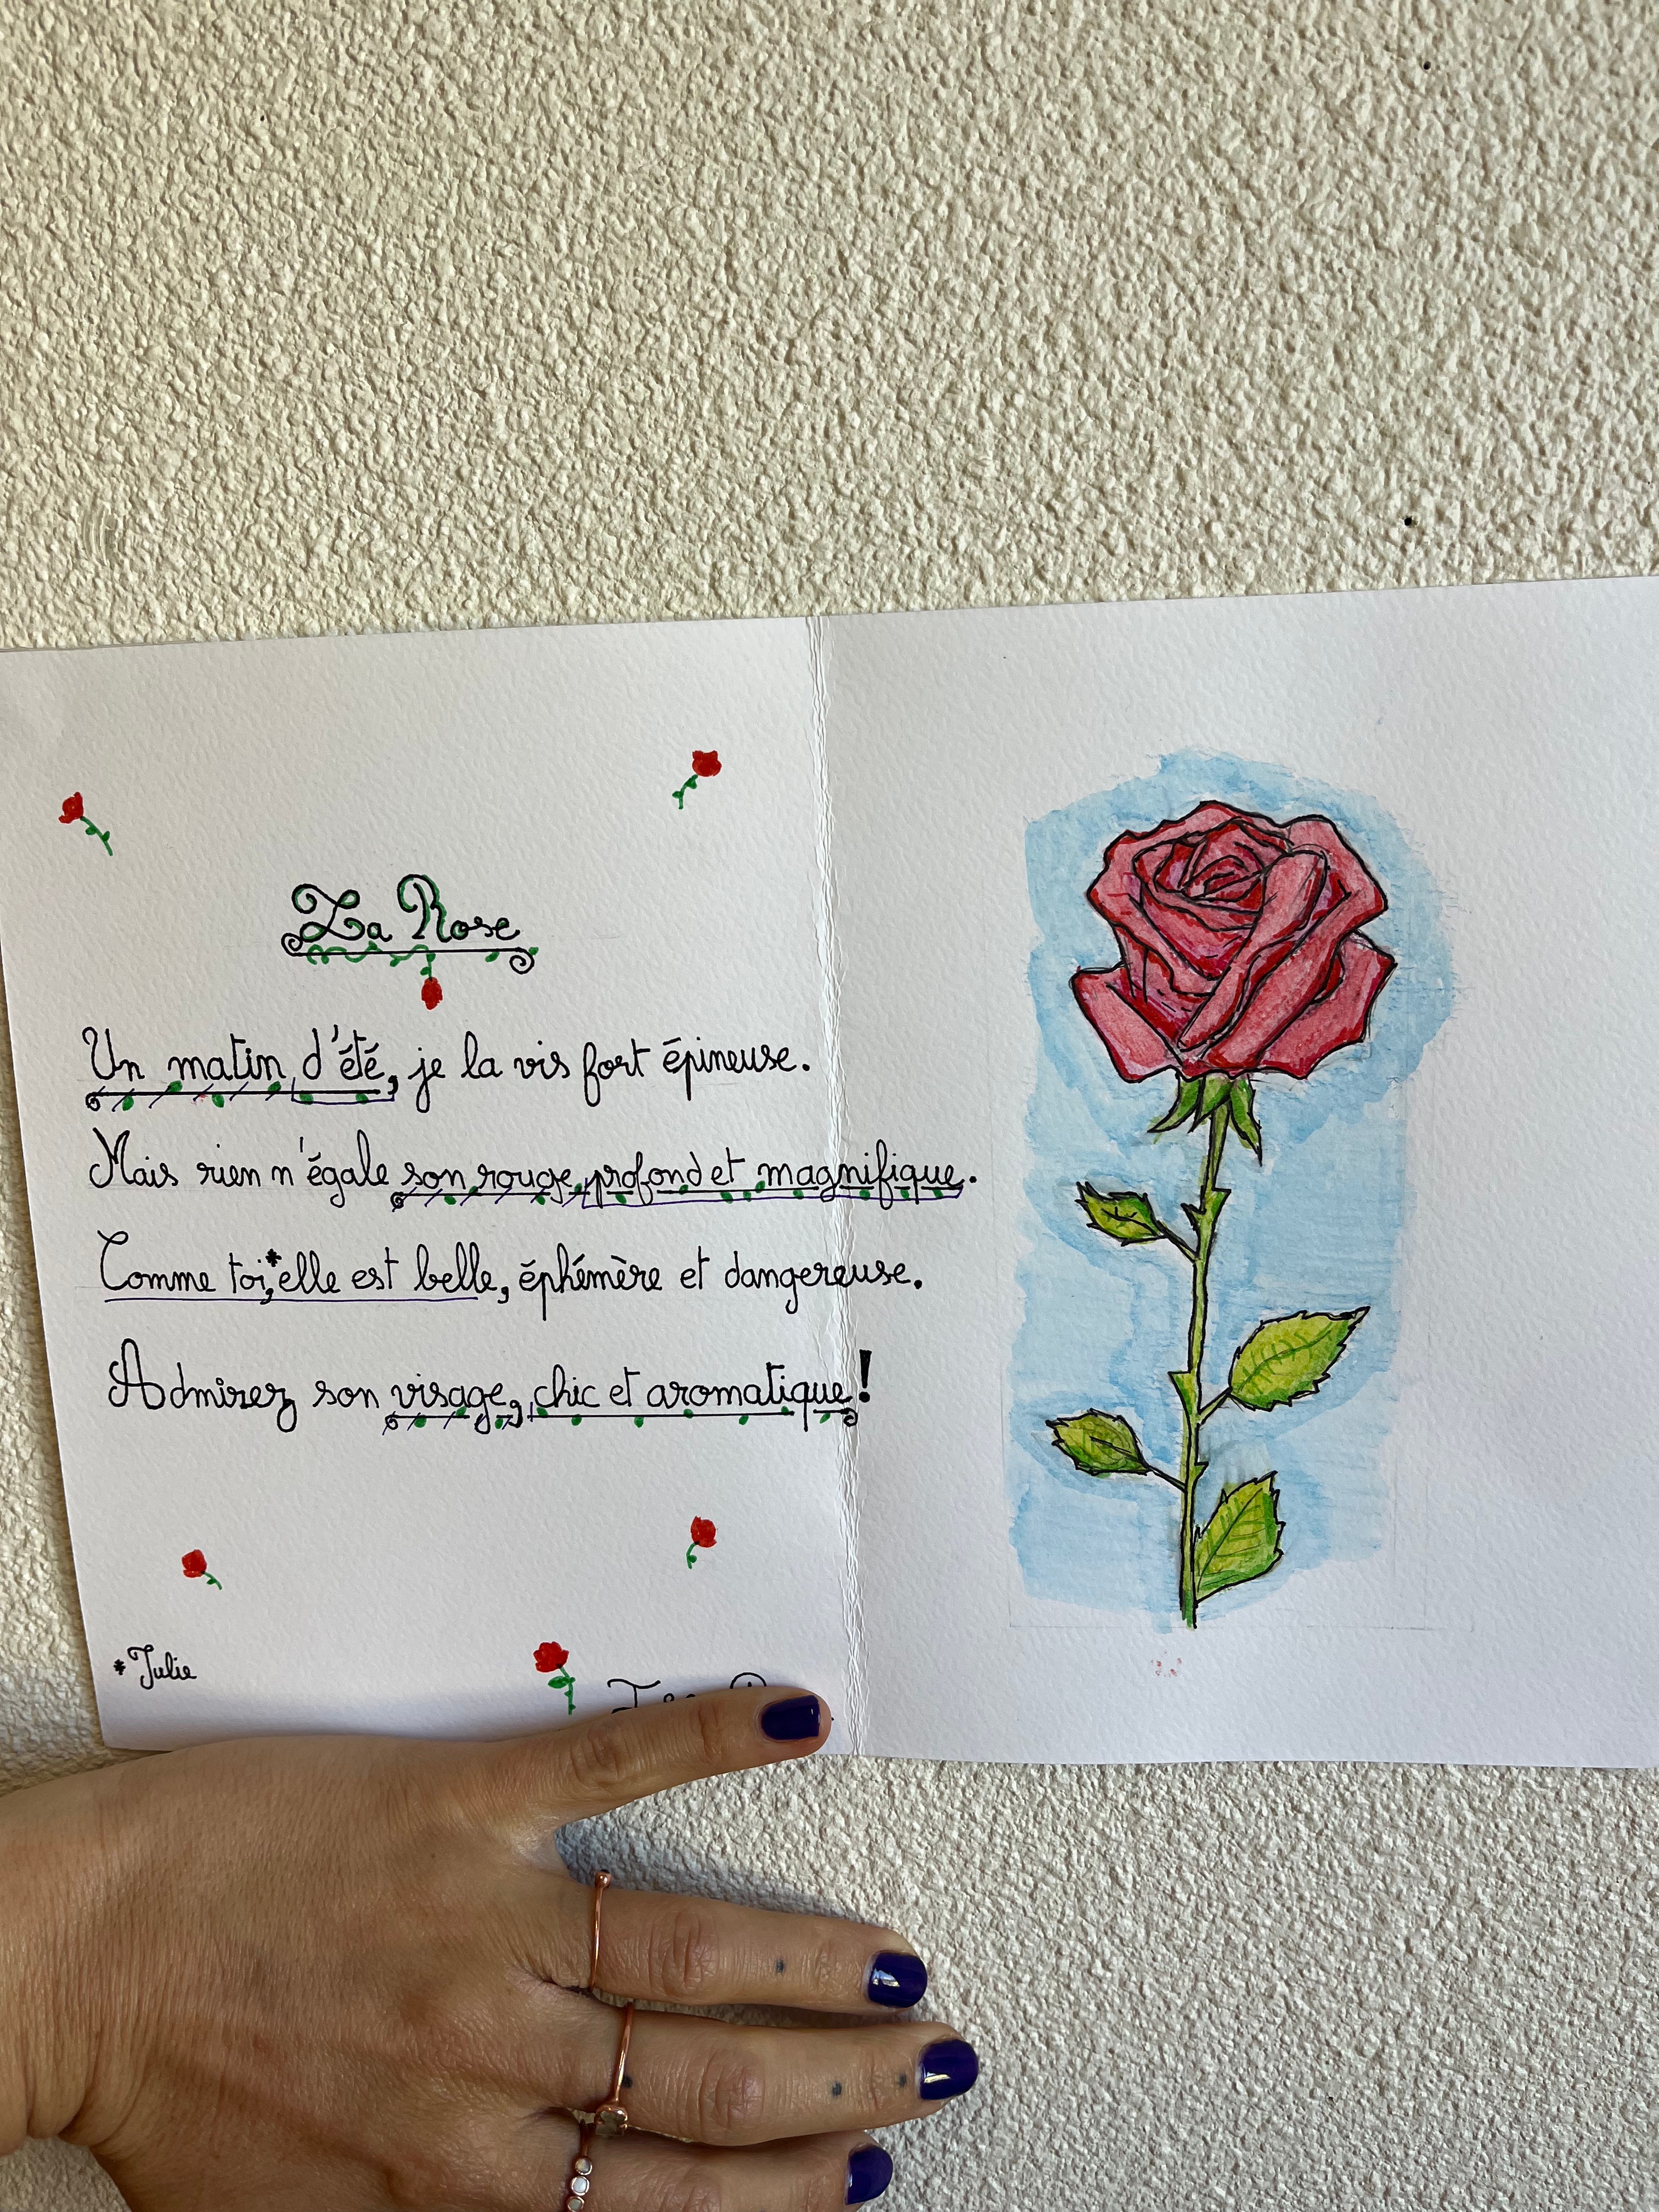 La Rose
Un matin d'été, je la vis fort épineuse.
Mais rien n'égale son rouge profond et magnifique.
Comme toi*, elle est belle, éphémère et dangereuse.
Admirez son visage, chic et aromatique !
* Julie